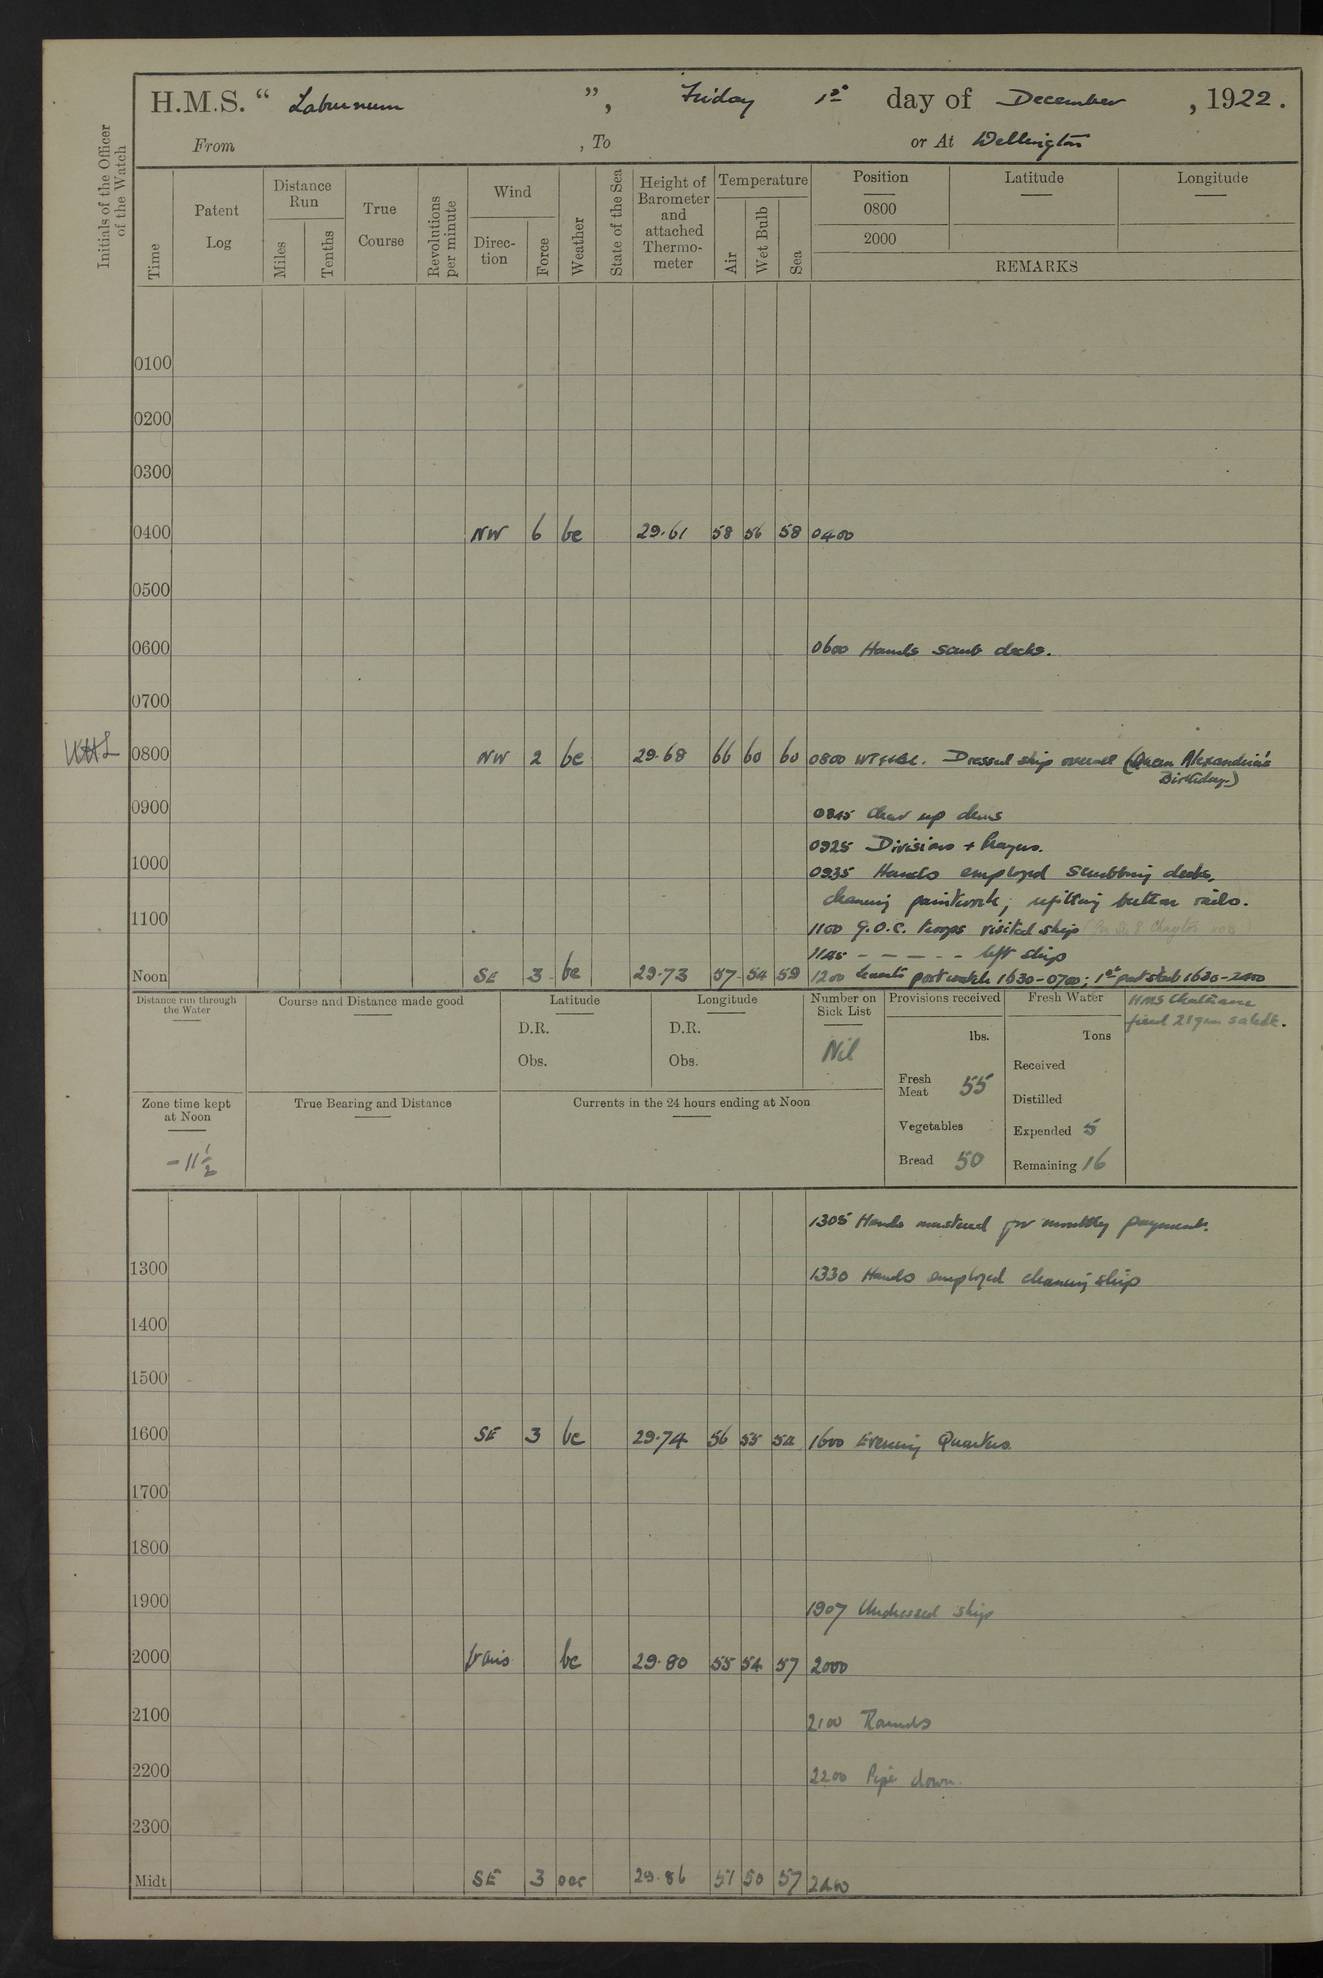 H.M.S. “ Laburnum ”, Friday 1st day of December , 1922.
From , To or At Wellington
Initials of the Officer of the Watch
Time
Patent Log
Distance Run
Miles
Tenths
True Course
Revolutions per minute
Wind
Direc-tion
Force
Weather
State of the Sea
Height of Barometer and attached Thermo-meter
Temperature
Air
Wet Bulb
Sea
Position Latitude Longitude
0800
2000
REMARKS
0100
0200
0300
0400 NW 6 bc 29.61 58 56 58 0400
0500
0600 0600 Hands scrub decks.
0700
0800 NW 2 bc 29.68 66 60 60 0800 Dressed ship overall (Queen Alexandria's
Birthday)
0900
0845 Clear up decks
0925 Divisions + Prayers.
1000
0935 Hands employed scrubbing decks,
cleaning paintwork; refitting
1100
1100 G.O.C. troops visited ship
1145 - - - - - left ship
Noon SE 3 bc 29.73 57 54 59 1200 Leave to port watch 1630-0700; 1st part stab 1630-2400
Distance run through the Water
Course and Distance made good
Latitude
D.R.
Obs.
Longitude
D.R.
Obs.
Number on Sick List
Nil
Provisions received
lbs.
Fresh Meat 55
Vegetables
Bread 50
Fresh Water
Tons
Received
Distilled
Expended 5
Remaining 16
HMS Chatham
fired 21 gun salute.
Zone time kept at Noon
-11 1/2
True Bearing and Distance
Currents in the 24 hours ending at Noon
1305 Hands mustered for monthly payment.
1300
1330 Hands employed cleaning ship
1400
1500
1600 SE 3 bc 29.74 56 55 54 1600 Evening Quarters
1700
1800
1900
1907 Undressed ship
2000 Vario bc 29.80 55 54 57 2000
2100
2100 Rounds
2200
2200 Pipe down.
2300
Midt SE 3 29.86 51 50 57 2400